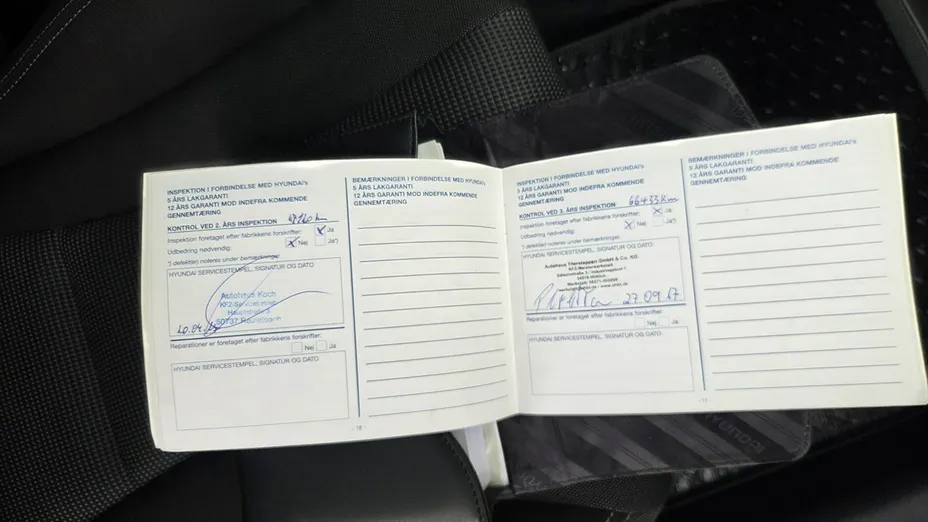 INSPEKTION I FORBINDELSE MED HYUNDAI's
5 ÅRS LAKGARANTI
12 ÅRS GARANTI MOD INDEFRA KOMMENDE
GENNEMTÆRING
KONTROL VED 2. ÅRS INSPEKTION
Inspektion foretaget efter fabrikkens forskrifter: X Ja
Udbedring nødvendig: X Nej Ja*)
*) defekt(er) noteres under bemærkninger
HYUNDAI SERVICESTEMPEL, SIGNATUR OG DATO
Autohaus Koch
Hauptstraße
Reparationer er foretaget efter fabrikkens forskrifter:
Nej Ja
HYUNDAI SERVICESTEMPEL, SIGNATUR OG DATO
- 16 -
BEMÆRKNINGER I FORBINDELSE MED HYUNDAI's
5 ÅRS LAKGARANTI
12 ÅRS GARANTI MOD INDEFRA KOMMENDE
GENNEMTÆRING
INSPEKTION I FORBINDELSE MED HYUNDAI's
5 ÅRS LAKGARANTI
12 ÅRS GARANTI MOD INDEFRA KOMMENDE
GENNEMTÆRING
KONTROL VED 3. ÅRS INSPEKTION 66433 km
Inspektion foretaget efter fabrikkens forskrifter: X Ja
Udbedring nødvendig: X Nej Ja*)
*) defekt(er) noteres under bemærkninger
HYUNDAI SERVICESTEMPEL, SIGNATUR OG DATO
GmbH & Co. KG
27.09.17
Reparationer er foretaget efter fabrikkens forskrifter:
Nej Ja
HYUNDAI SERVICESTEMPEL, SIGNATUR OG DATO
- 17 -
BEMÆRKNINGER I FORBINDELSE MED HYUNDAI's
5 ÅRS LAKGARANTI
12 ÅRS GARANTI MOD INDEFRA KOMMENDE
GENNEMTÆRING
HYUNDAI